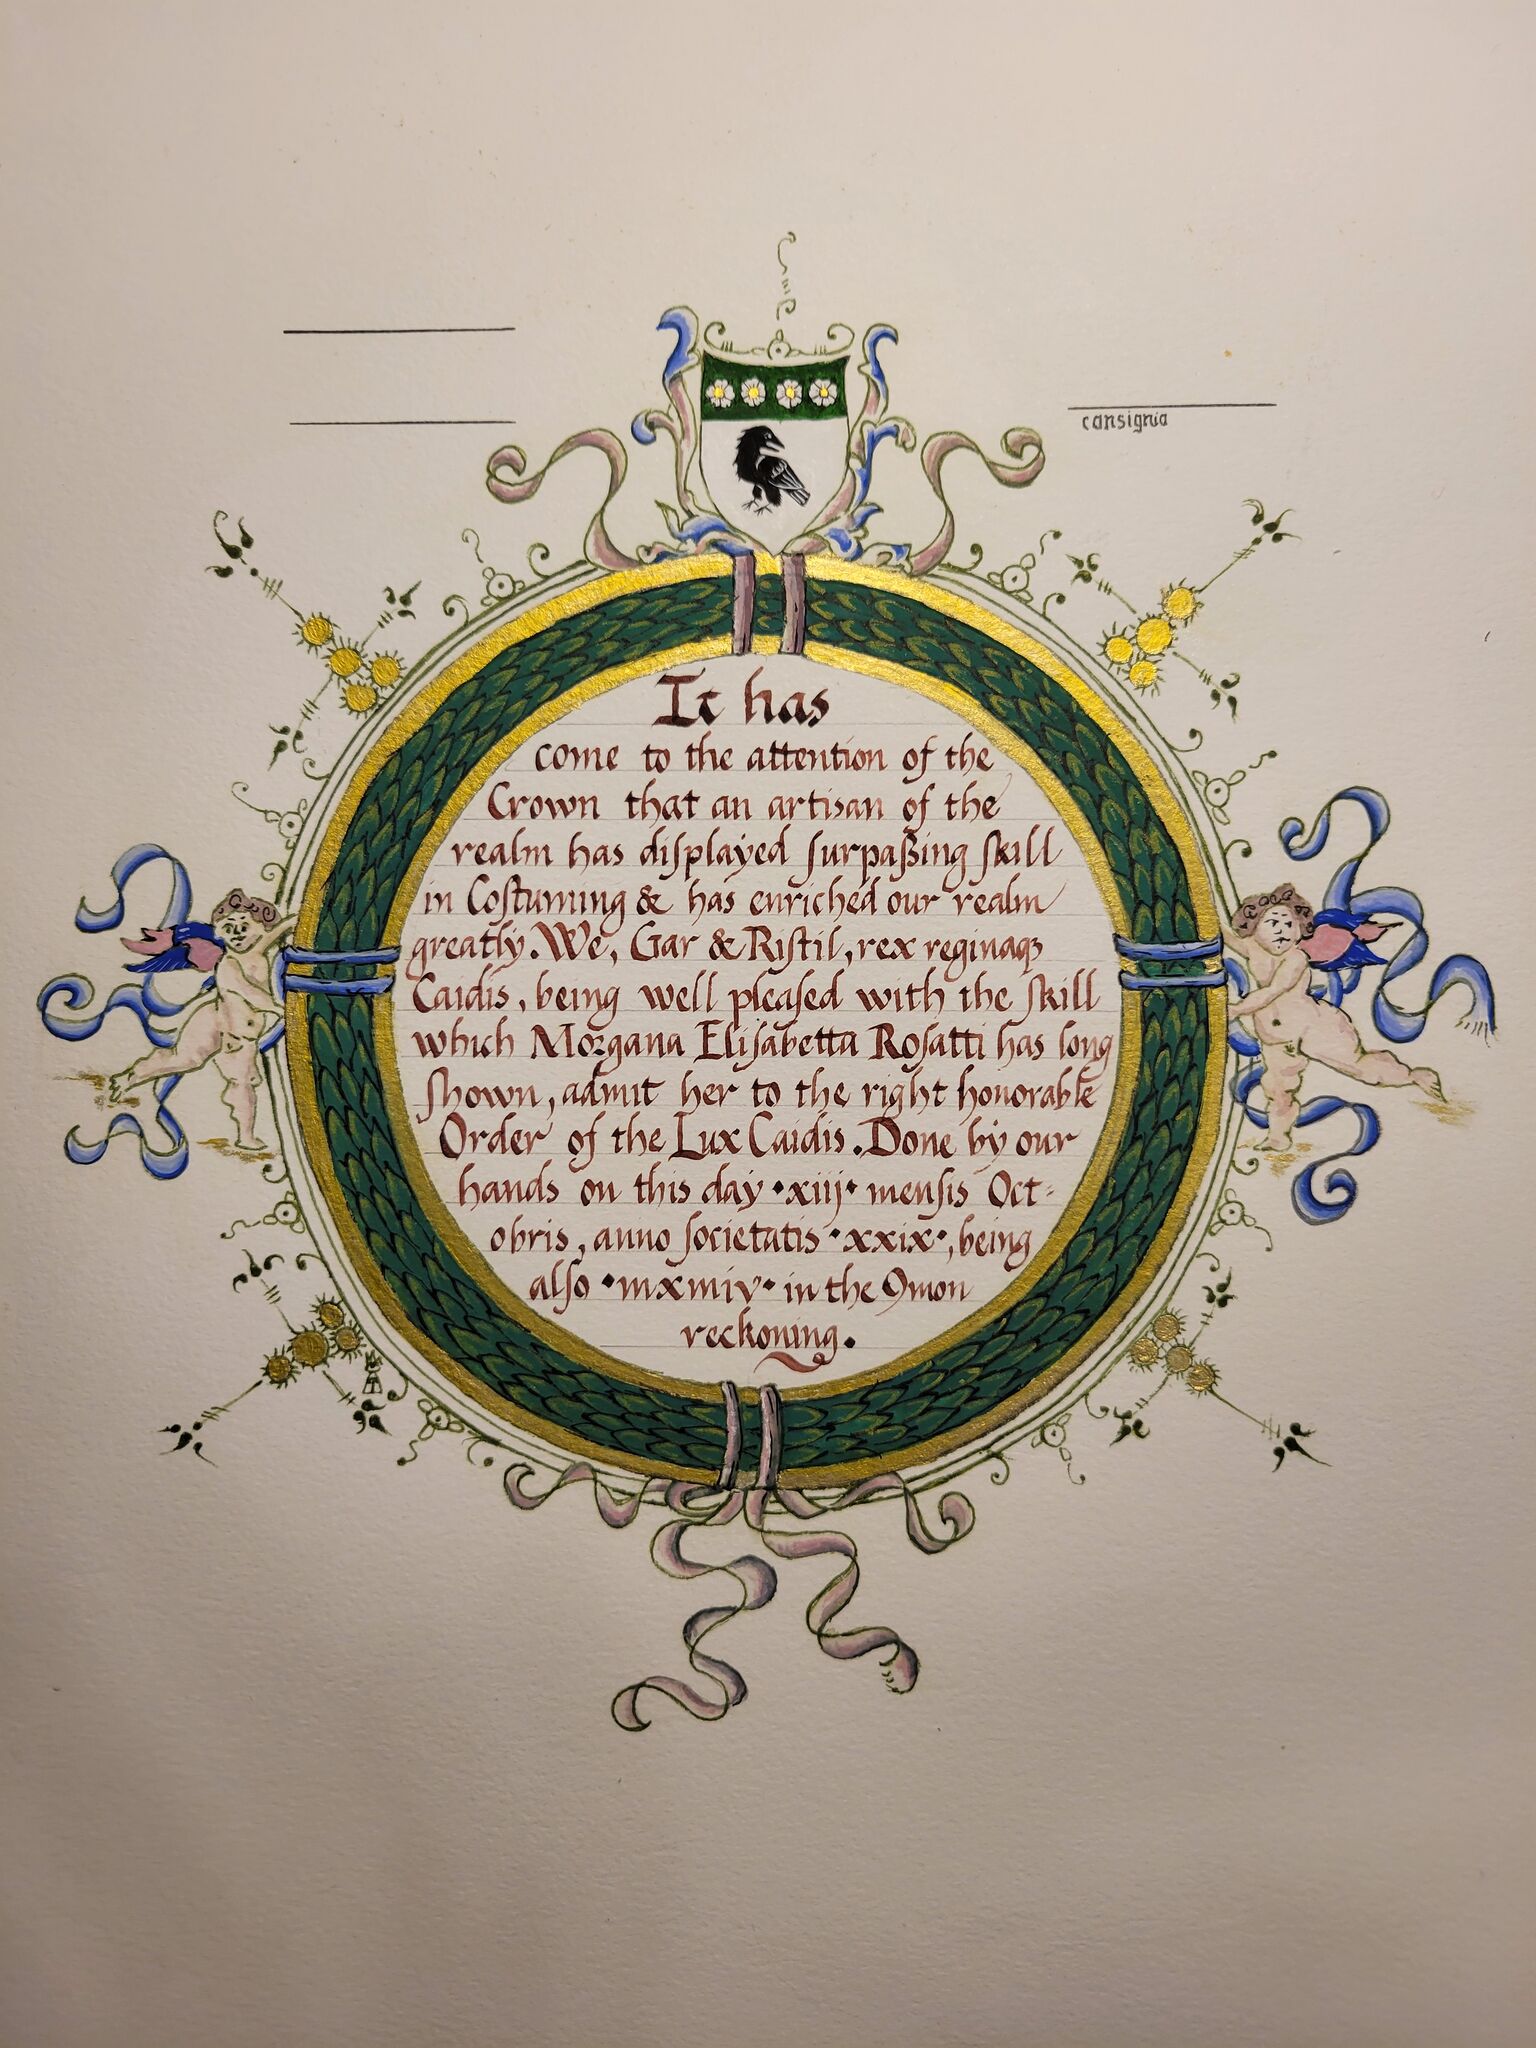 cansignia
It has
come to the attention of the
Crown that an artisan of the
realm has diſplayed ſurpaßing ſkill
in Coſtuming & has enriched our realm
greatly. We, Gar & Riſtil, rex reginaqꝫ
Caidis, being well pleaſed with the ſkill
which Morgana Eliſabetta Roſatti has long
ſhown, admit her to the right honorable
Order of the Lux Caidis. Done by our
hands on this day •xiij• menſis Oct-
obris, anno ſocietatis •xxix•, being
alſo •mxmiv• in the Ꝯmon
reckoning.